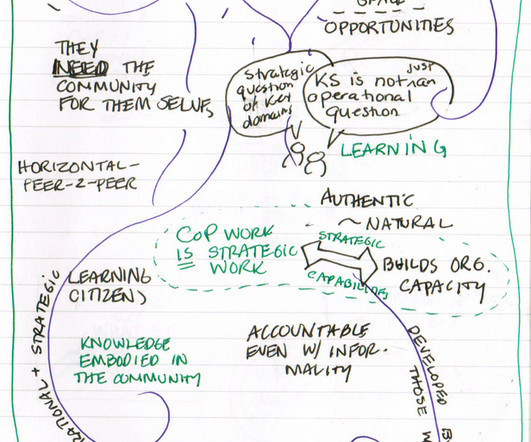 SPACE
OPPORTUNITIES
THEY
NEED THE
COMMUNITY
FOR THEM SELVES
Strategic
question
of key
domains
KS is not just an
operational
question
LEARNING
HORIZONTAL-
PEER-2-PEER
AUTHENTIC
~ NATURAL
CoP WORK
IS STRATEGIC
WORK
STRATEGIC
CAPABILITIES
BUILDS ORG.
CAPACITY
LEARNING
CITIZENS
KNOWLEDGE
EMBODIED IN
THE COMMUNITY
ACCOUNTABLE
EVEN W/ INFOR-
MALITY
RATIONAL + STRATEGIC
DEVELOPED
THOSE